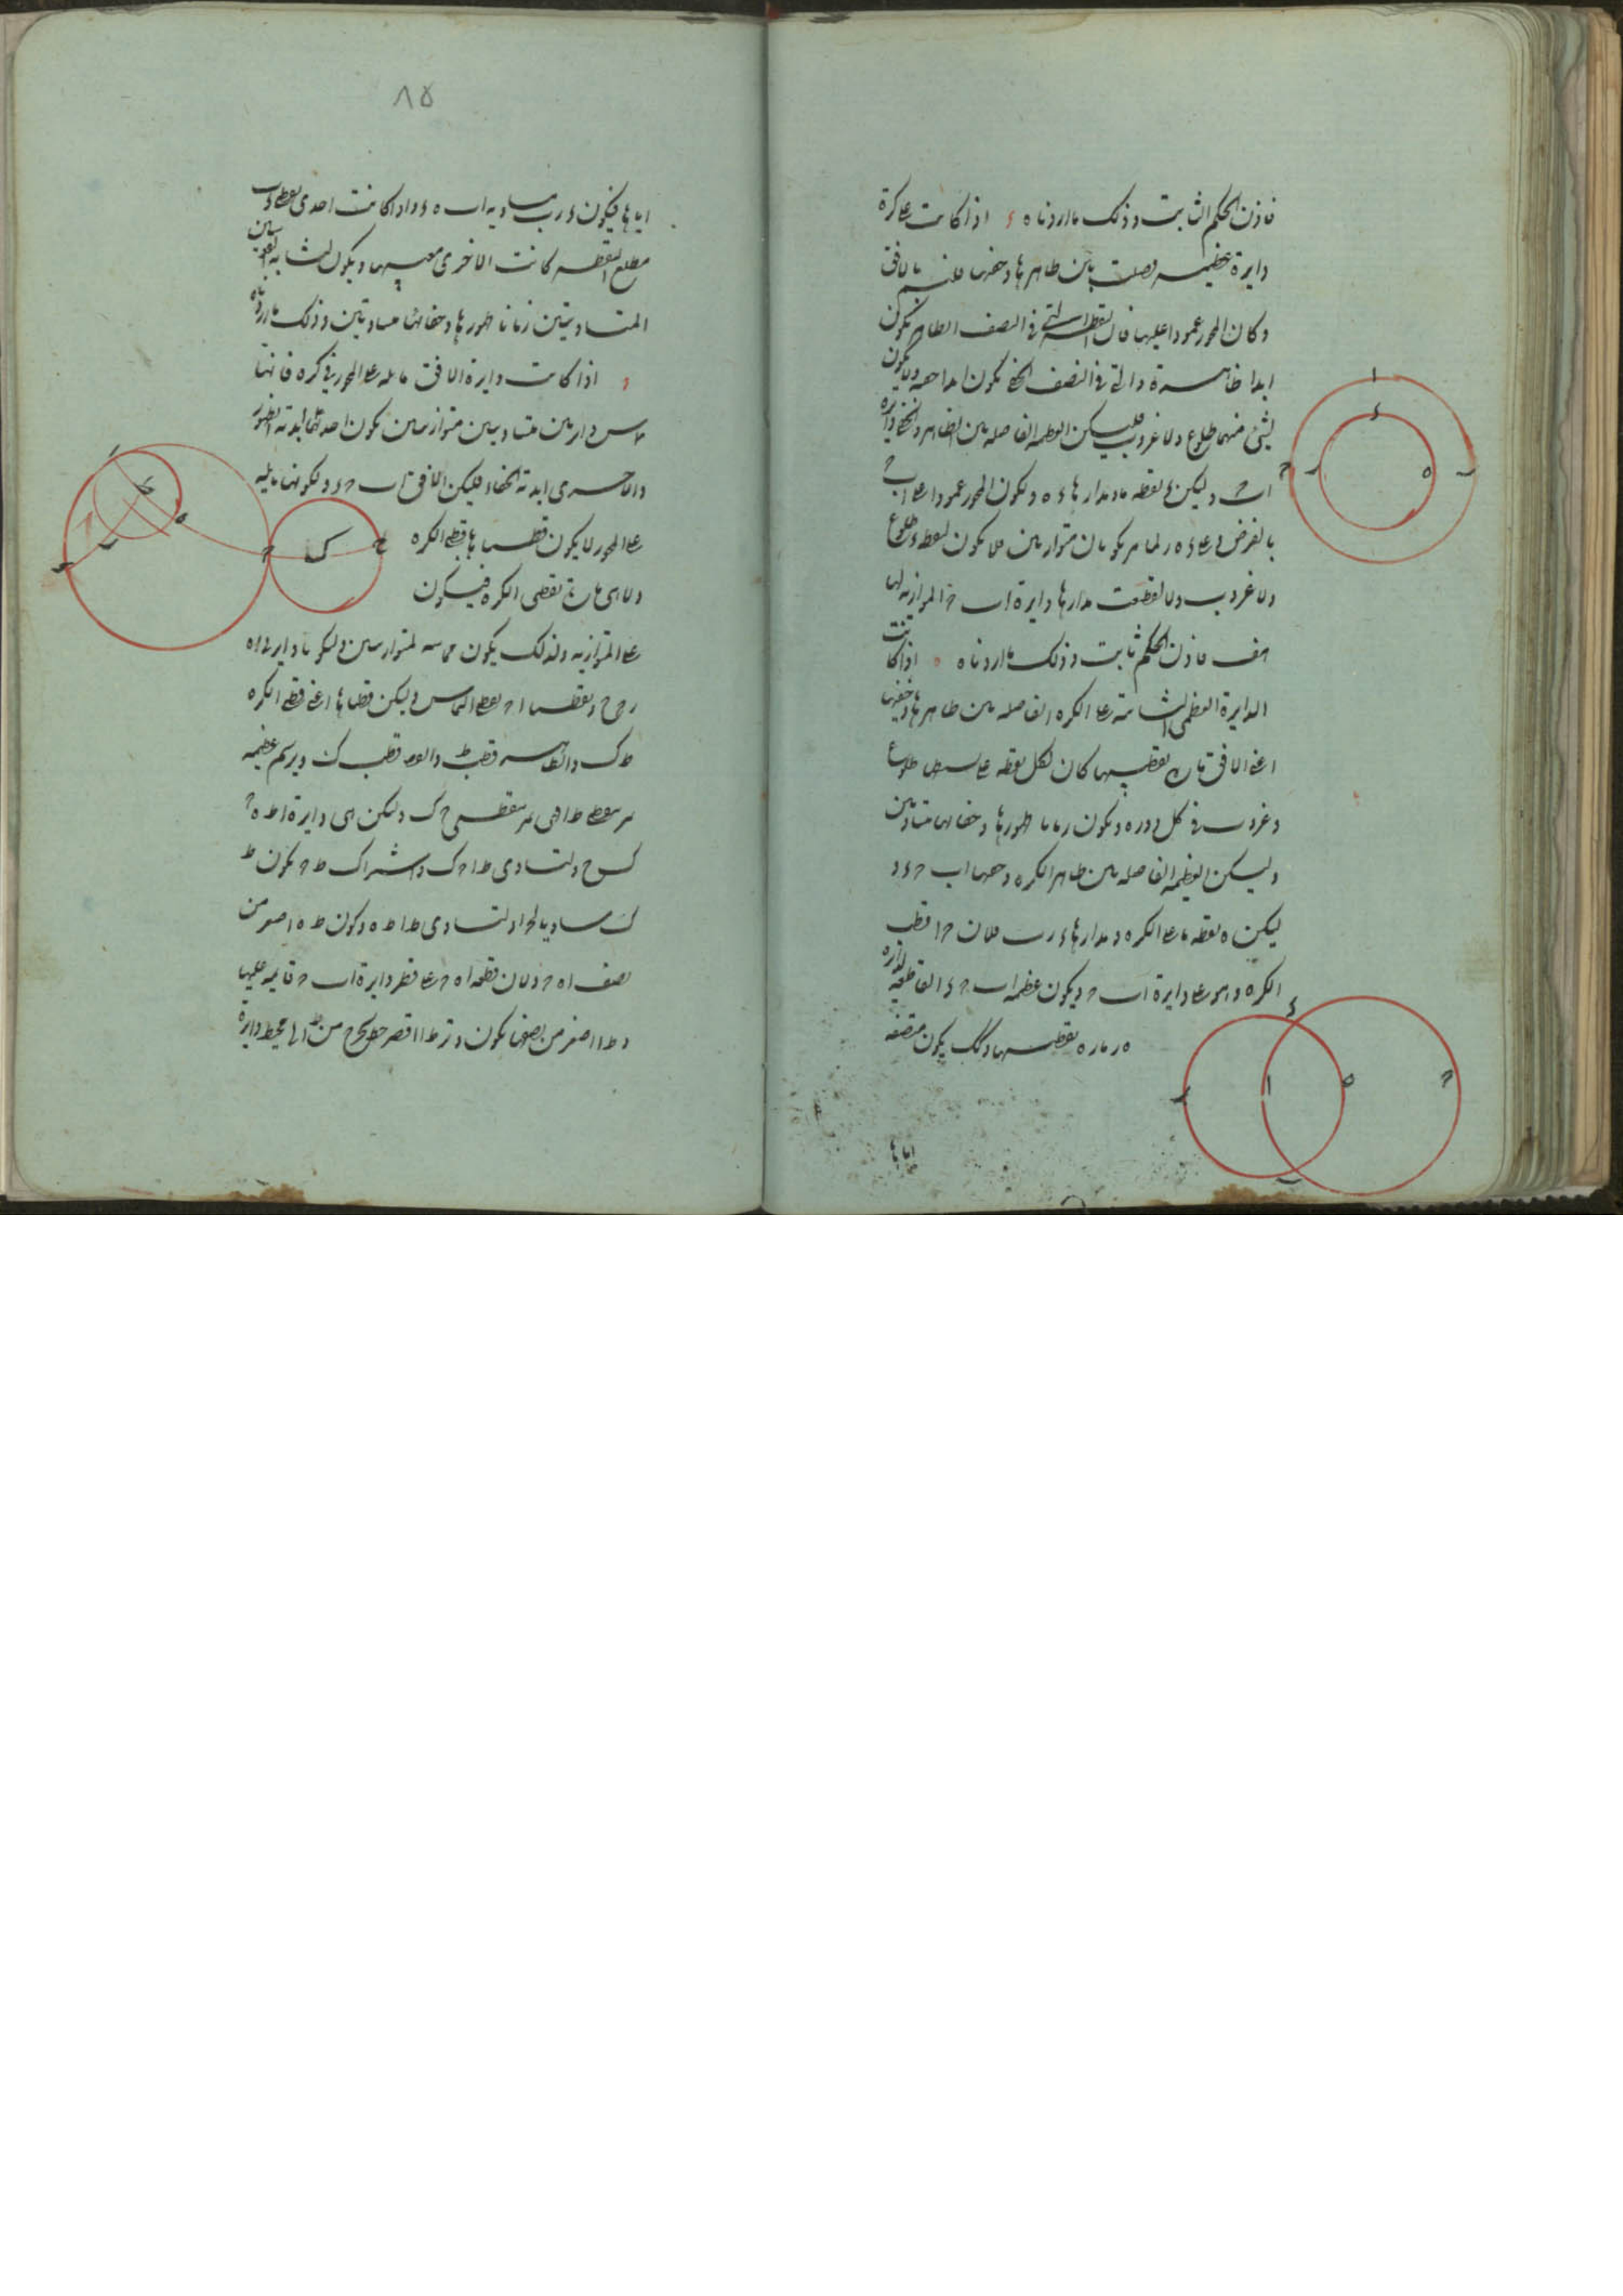 فاذن الحكم الثابت وذلك ما اردناه ء اذا كانت علی كرة
دايرة عظيمه فصلت بين ظاهرها وخفيها فلنسم بالافق
وكان المحور عمودا عليها فان النقطة التي في النصف الظاهر تكون
ابدا ظاهرة والتي في النصف الخفي تكون ابدا خفيه ولا يكون
لشئ منهما طلوع ولا غروب فليكن العظيمه الفاصله بين الظاهر والخفي دايره
اب ح وليكن ء نقطه ما ومدارها ء ه وليكون المحور عمودا علی اب ح
بالفرض وعلی ء ه ر لما مر يكونان متوازيين فلا يكون لنقطه ء طلوع
ولا غروب والا لقطعت مدارها دايرة اب ح الموازيه لها
هف فاذن الحكم ثابت وذلك ما اردناه ه اذا كانت
الدايرة العظمی الثابتة علی الكره الفاصله بين ظاهرها وخفيها
اعني الافق مارة بقطبيها كان لكل نقطه علی طلوع
وغروب في كل دوره ويكون زمانا ظهورها وخفائها متساويين
وليكن العظيمه الفاصله بين ظاهر الكره وخفيها اب ح ء و
ليكن ه نقطه ما علی الكره ومدارها ء ر ب فلان ح ا قطب
الكره وهو علی دايرة اب ح ويكون عظمة اب ح ء القاطعه لدايره
ه ر ماره بقطبيها ولك يكون منصفه
اياها
ا
ء
ح
ر
ه
ب
ء
ر
ا
ه
ح
ب
٨٥
اياها فيكون ء ر ب مساويه ل ب ه ء واذا كانت احدی نقطتي ء ب
مطلع النقطه كانت الاخری مغيبها ويكون لتشابه القوسين
المتساويتين زمانا ظهورها وخفائها متساويين وذلك ما اردناه
و اذا كانت دايرة الافق مايله علی المحور في كره فانها
تماس دايرتين متساويتين متوازيتين تكون احدهما ابدية الظهور
والاخری ابدية الخفاء فليكن الافق اب ح ء ولكونها مايله
علی المحور لا يكون قطباها قطبي الكره
ولا هي مارة بقطبي الكره فيكون
علی المتوازيه ولذلك يكون مماسه لمتوازيتين وليكونا دايرتي ا ه
ر ح ح ونقطتا ا ح نقطتي التماس وليكن قطباها اعني قطبي الكره
ط ك والظاهر قطب ط والخفي قطب ك ونرسم عظيمه
تمر بنقطتي ط ا فهي تمر بنقطتي ح ك وليكن هي دايرة ا ط ه ح
ك ح ولتساوي ط ا ح ك واشتراك ط ح يكون ط
ك مساويا ل ح ا ولتساوي ط ا ط ه وكون ط ه اصغر من
نصف ا ه ح ولان قطعه ا ه ح علی قطر دايرة اب ح قايمه عليها
و ط ا اصغر من نصفها يكون وتر ط ا اقصر خط يخرج من ط الی محيط دايرة
ر
ط
ه
ب
ا
ح
ك
ح